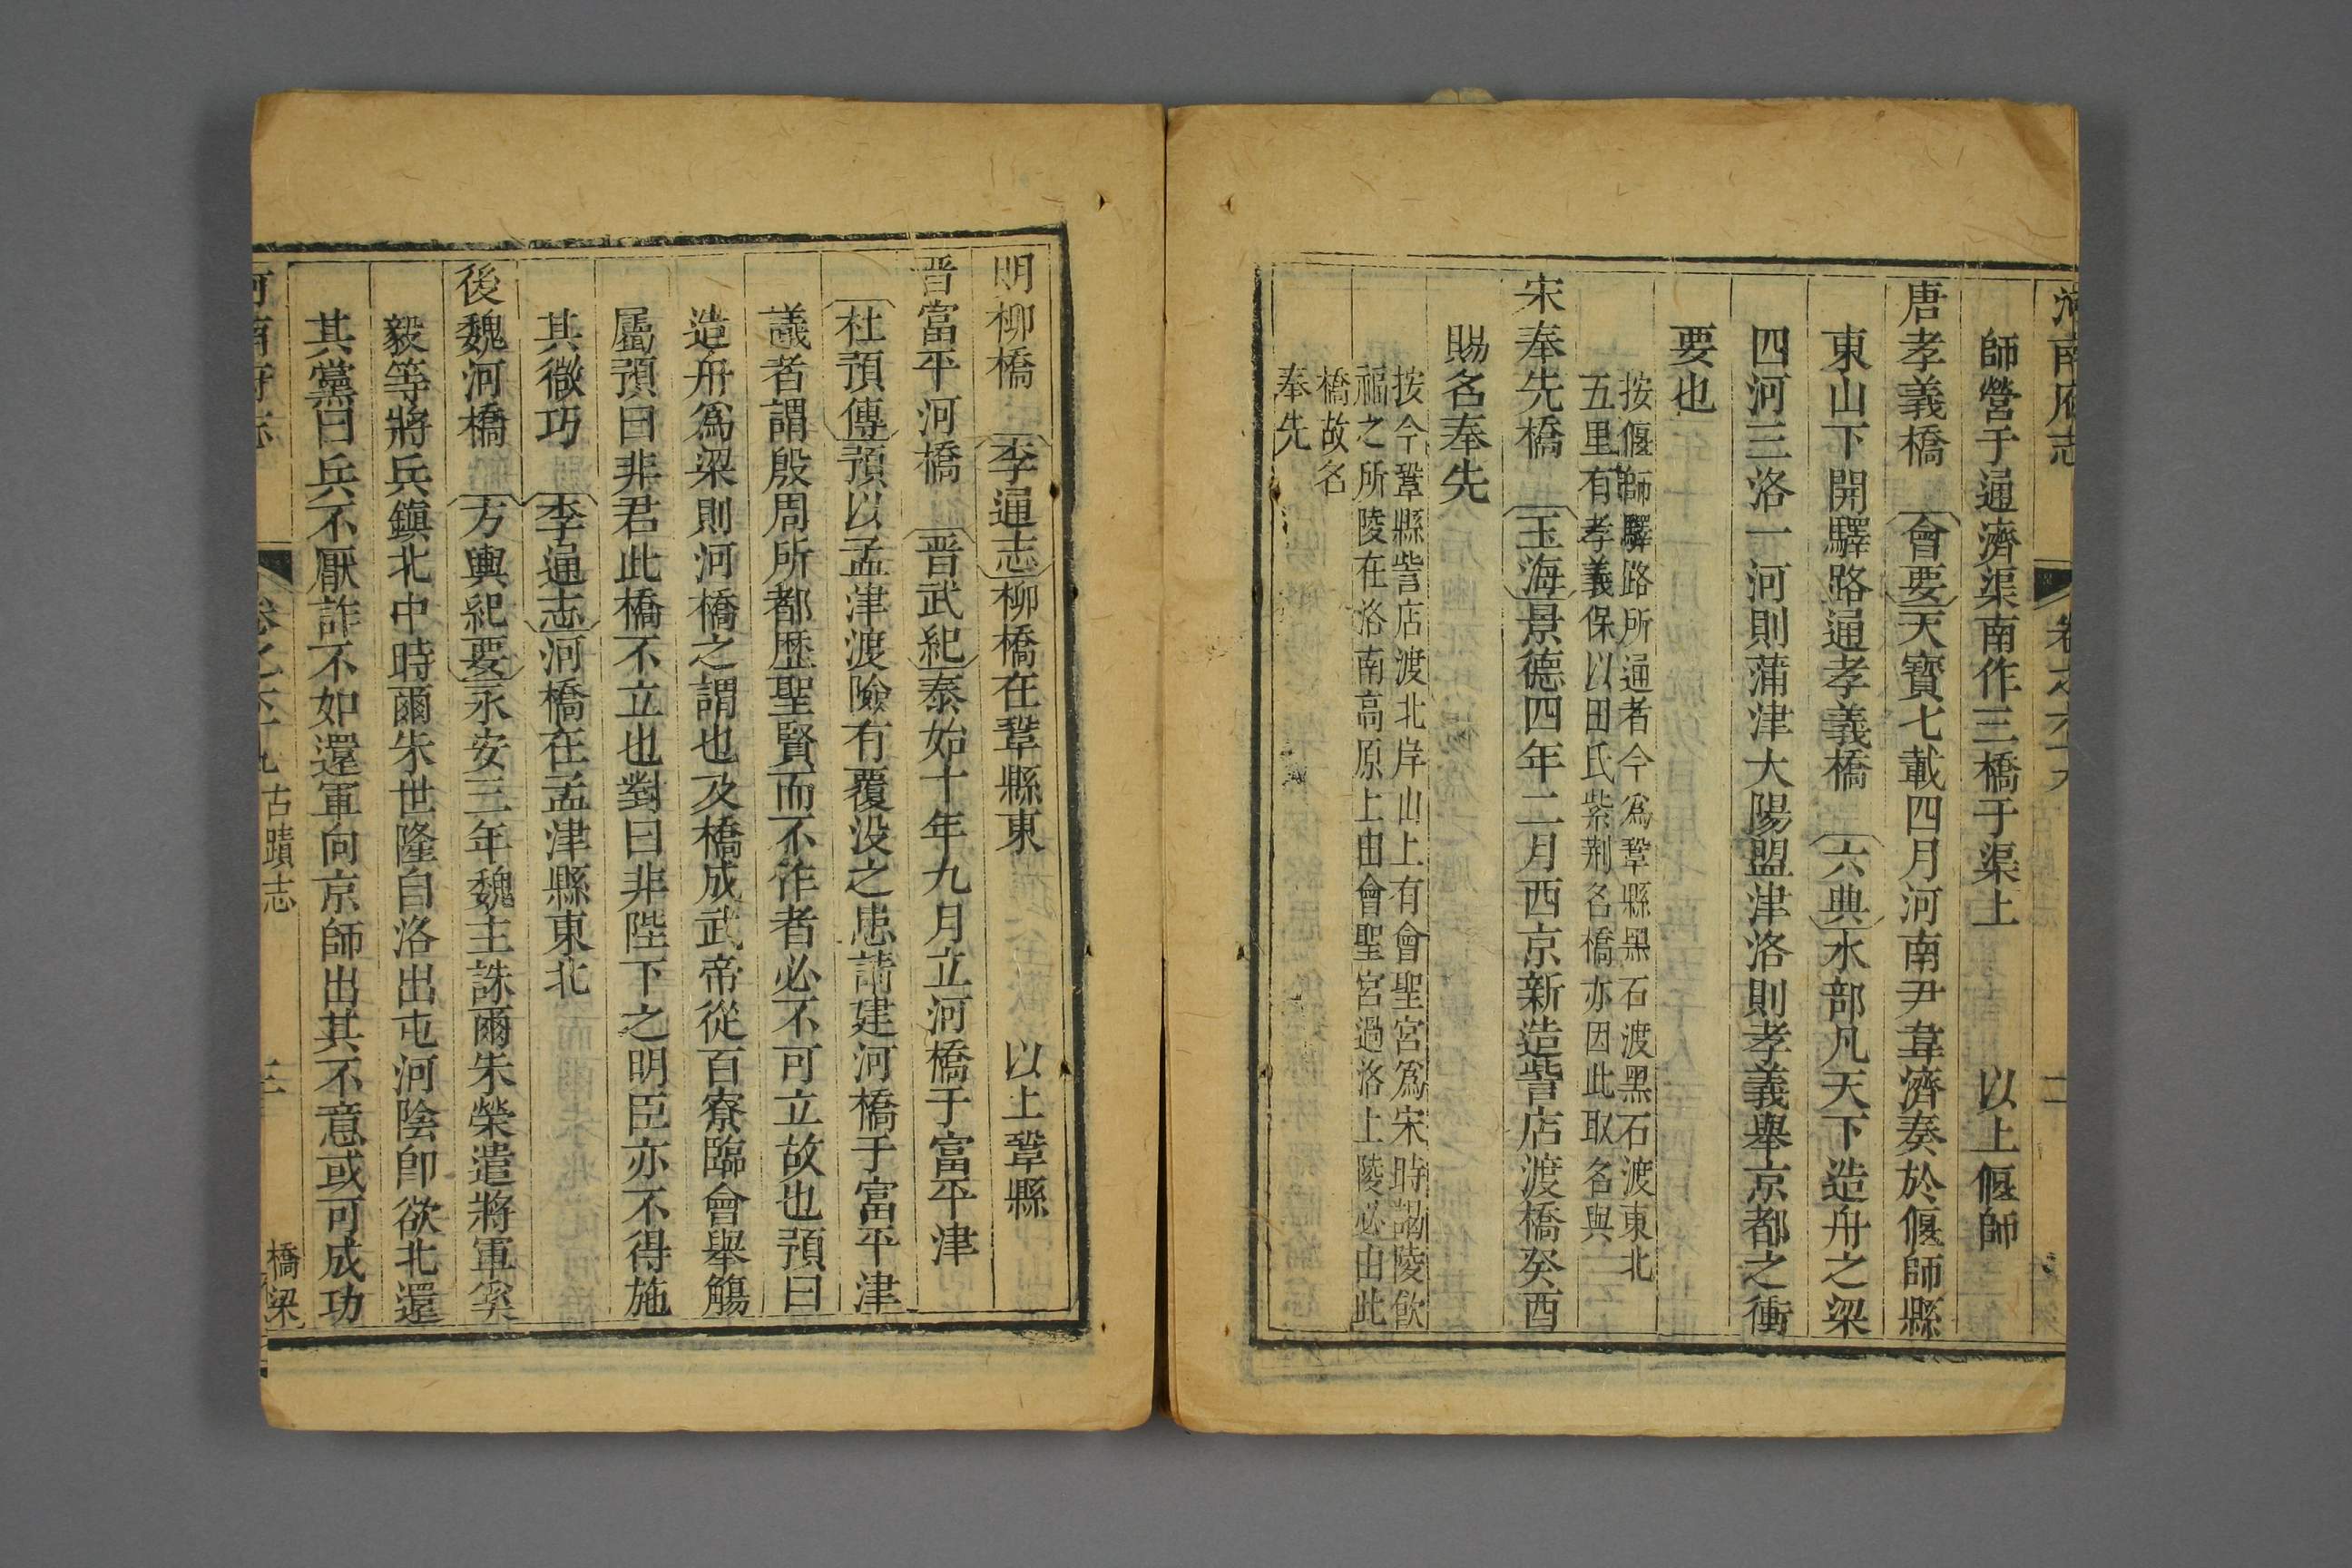 河南府志 卷之六十九 二
師營于通濟渠南作三橋于渠上 以上偃師
唐孝義橋 會要天寶七載四月河南尹韋濟奏於偃師縣
東山下開驛路通孝義橋 六典水部凡天下造舟之梁
四河三洛一河則蒲津大陽盟津洛則孝義舉京都之衝
要也
按偃師驛路所通者今爲鞏縣黑石渡黑石渡東北
五里有孝義保以田氏紫荆名橋亦因此取名與
宋奉先橋 玉海景德四年二月西京新造訾店渡橋癸酉
賜名奉先
按今鞏縣訾店渡北岸山上有會聖宮爲宋時謁陵飲
福之所陵在洛南高原上由會聖宮過洛上陵必由此
橋故名
奉先
明柳橋 李通志柳橋在鞏縣東 以上鞏縣
晋富平河橋 晋武紀泰始十年九月立河橋于富平津
杜預傳預以孟津渡險有覆没之患請建河橋于富平津
議者謂殷周所都歴聖賢而不作者必不可立故也預曰
造舟爲梁則河橋之謂也及橋成武帝從百寮臨會舉觴
屬預曰非君此橋不立也對曰非陛下之明臣亦不得施
其微巧 李通志河橋在孟津縣東北
後魏河橋 方輿紀要永安三年魏主誅爾朱榮遣將軍奚
毅等將兵鎮北中時爾朱世隆自洛出屯河陰卽欲北還
其黨曰兵不厭詐不如還軍向京師出其不意或可成功
河南府志 卷之六十九 古蹟志 三 橋梁